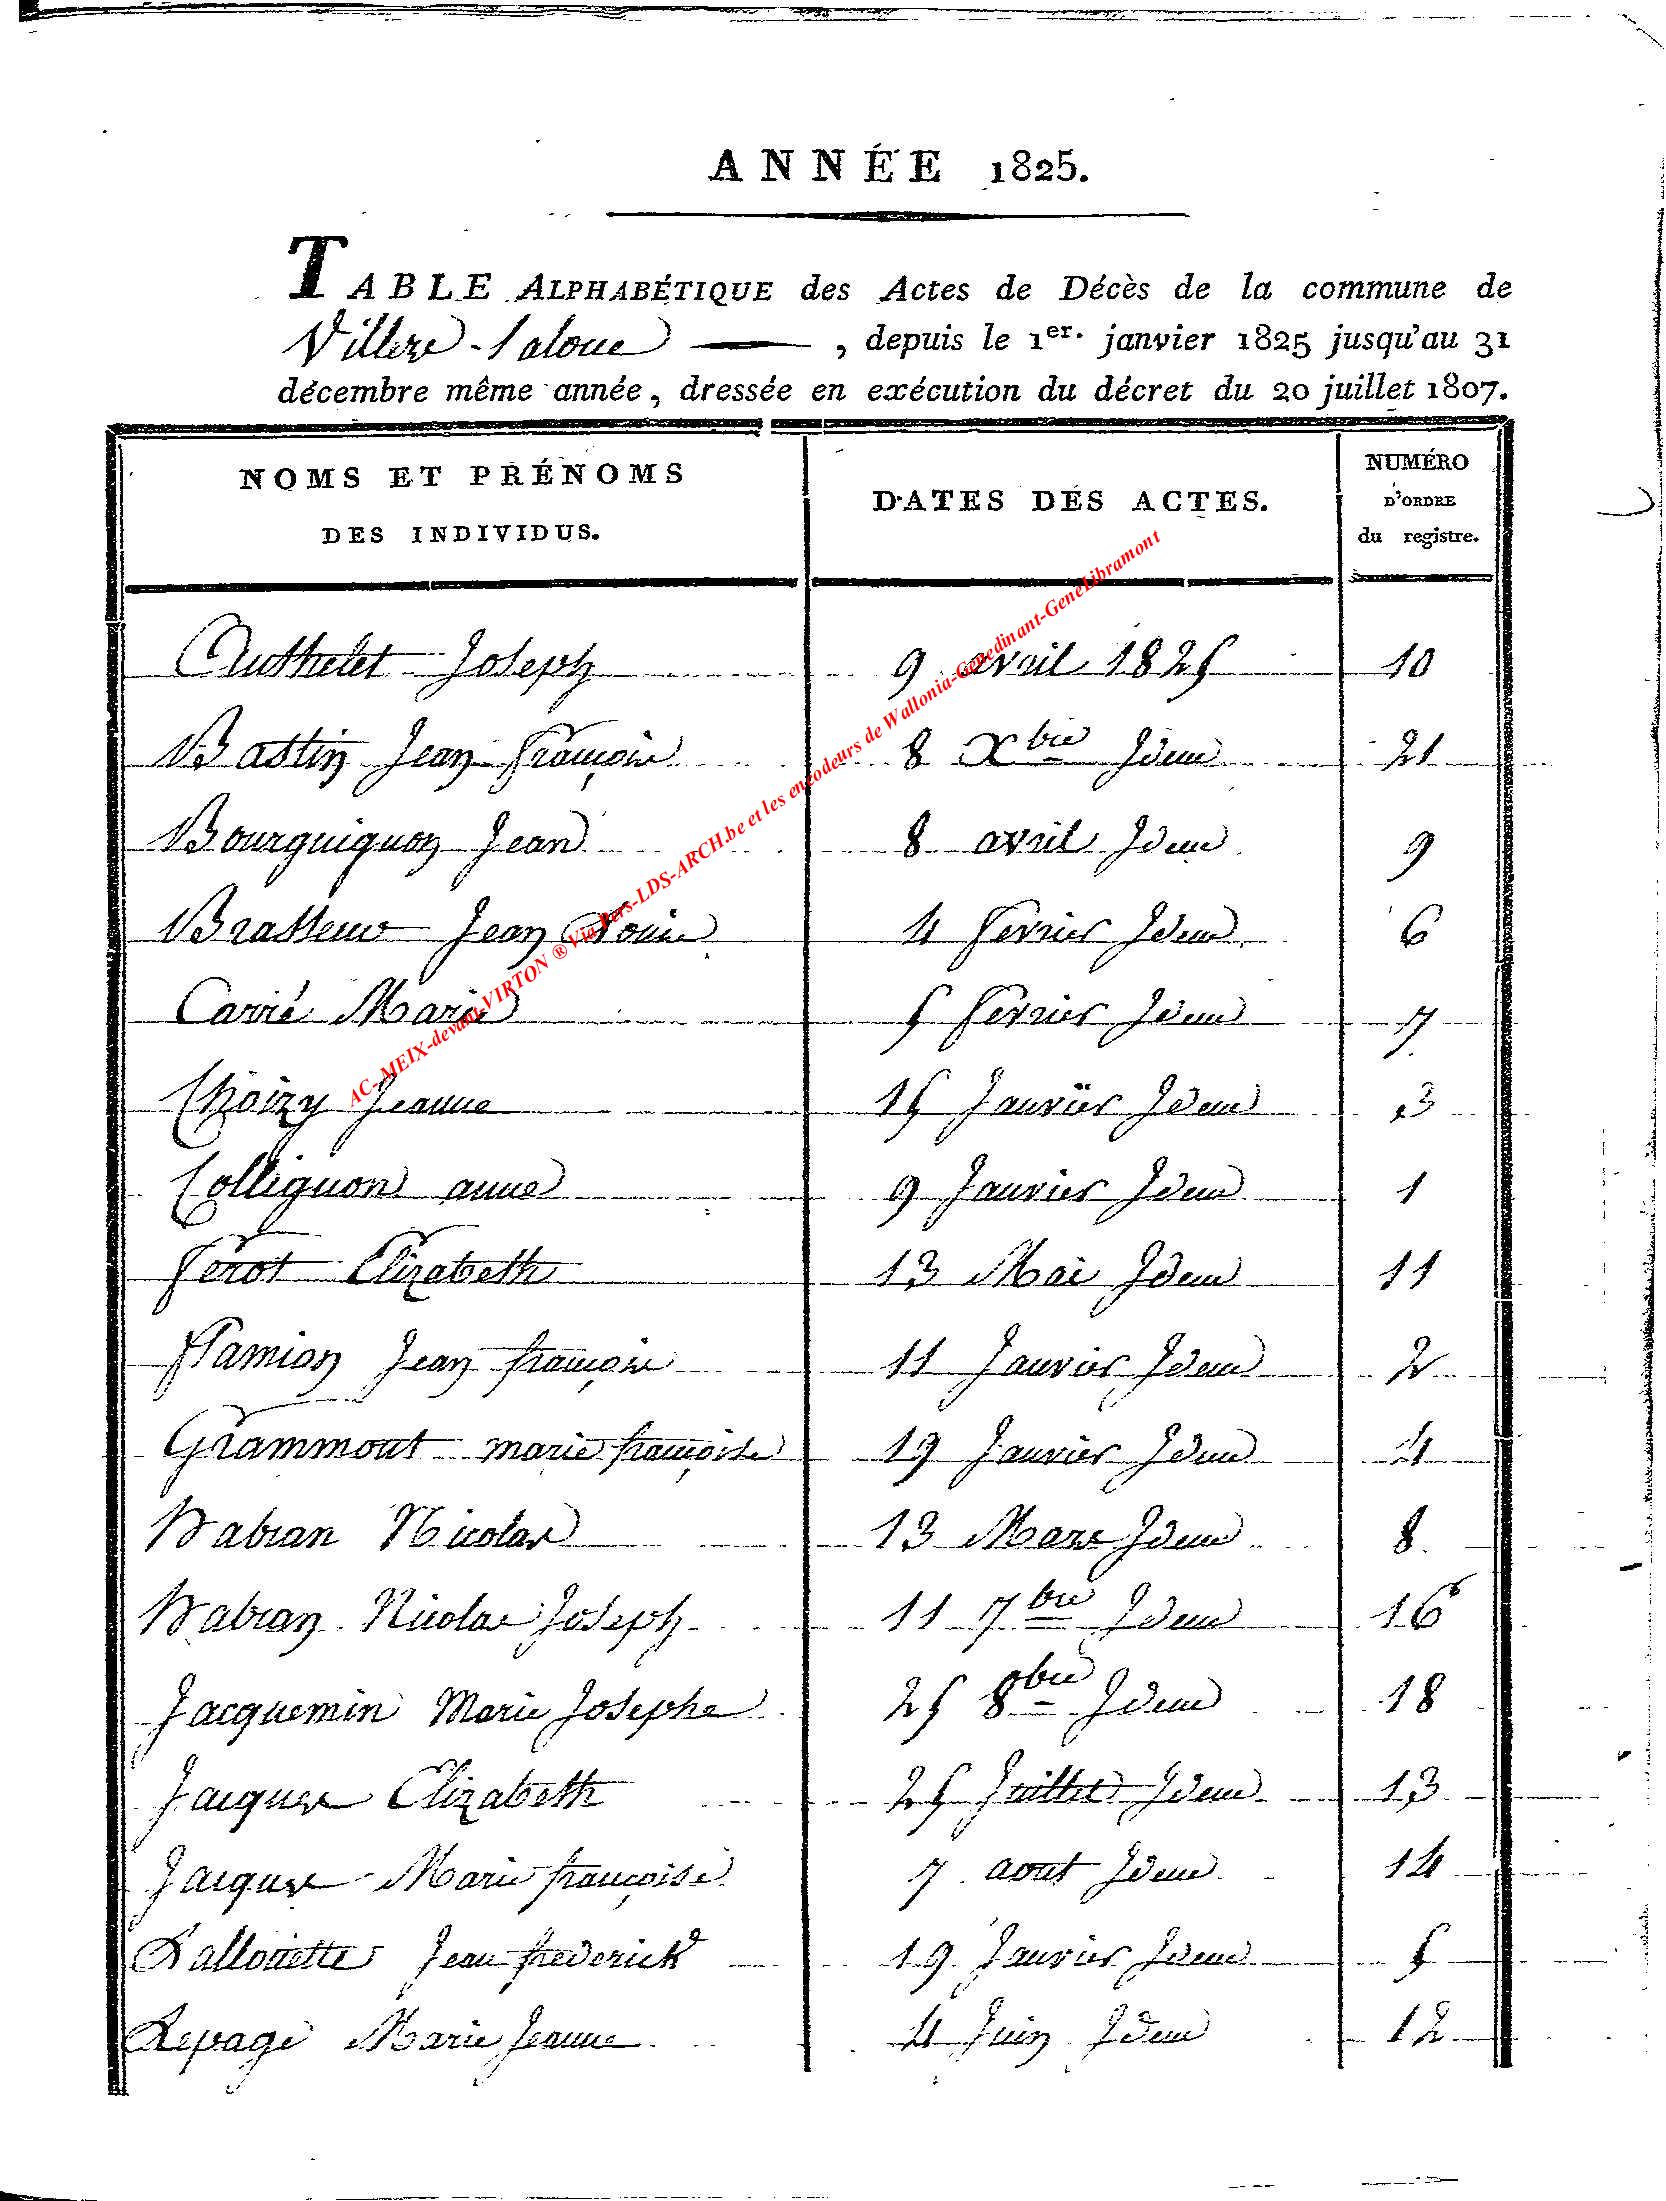 ANNÉE 1825.
TABLE ALPHABÉTIQUE des Actes de Décès de la commune de
Villers-laloue, depuis le 1er. janvier 1825 jusqu'au 31
décembre même année, dressée en exécution du décret du 20 juillet 1807.
NOMS ET PRÉNOMS
DES INDIVIDUS.
DATES DES ACTES.
NUMÉRO
D'ORDRE
du registre.
Authelet Joseph 9 avril 1825 10
Bastin Jean françois 8 Xbre Idem 21
Bourguignon Jean 8 avril Idem 9
Brasseur Jean Louis 4 fevrier Idem 6
Carré Marie 5 fevrier Idem 7
Choizy Jeanne 15 Janvier Idem 3
Collignon anne 9 Janvier Idem 1
ferot Elizabeth 13 Mai Idem 11
flamion Jean françois 11 Janvier Idem 2
Grammont marie françoise 19 Janvier Idem 4
Habran Nicolas 13 Mars Idem 8
Habran Nicolas Joseph 11 7bre Idem 16
Jacquemin Marie Josephe 25 8bre Idem 18
Jacques Elizabeth 25 Juillet Idem 13
Jacques Marie françoise 7 aout Idem 14
Lallouette Jean frederick 19 Janvier Idem 5
Lepage Marie Jeanne 4 Juin Idem 12
AC-MEIX-devant-VIRTON ® Via Pers-LDS-ARCH.be et les encodeurs de Wallonia-Genedinant-GeneLibramont